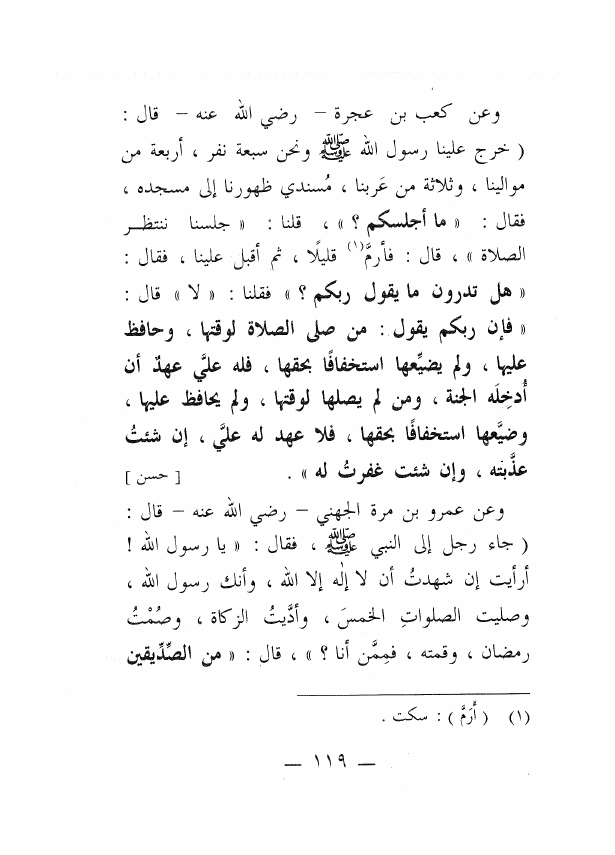 وعن كعب بن عجرة – رضي الله عنه – قال :
( خرج علينا رسول الله ﷺ ونحن سبعة نفر ، أربعة من
موالينا ، وثلاثة من عَربنا ، مُسندي ظهورنا إلى مسجده ،
فقال : « ما أجلسكم ؟ » ، قلنا : « جلسنا ننتظر
الصلاة » ، قال : فأرمَّ(١) قليلًا ، ثم أقبل علينا ، فقال :
« هل تدرون ما يقول ربكم ؟ » فقلنا : « لا » قال :
« فإن ربكم يقول : من صلى الصلاة لوقتها ، وحافظ
عليها ، ولم يضيِّعها استخفافًا بحقها ، فله عليَّ عهدٌ أن
أُدخِلَه الجنة ، ومن لم يصلها لوقتها ، ولم يحافظ عليها ،
وضيَّعها استخفافًا بحقها ، فلا عهد له عليَّ ، إن شئتُ
عذَّبته ، وإن شئت غفرتُ له » . [ حسن ]
وعن عمرو بن مرة الجهني – رضي الله عنه – قال :
( جاء رجل إلى النبي ﷺ ، فقال : « يا رسول الله !
أرأيت إن شهدتُ أن لا إلٰه إلا الله ، وأنك رسول الله ،
وصليت الصلواتِ الخمسَ ، وأدَّيتُ الزكاة ، وصُمْتُ
رمضان ، وقمته ، فمِمَّن أنا ؟ » ، قال : « من الصِّدِّيقين
(١) ( أَرَمَّ ) : سكت .
— ١١٩ —